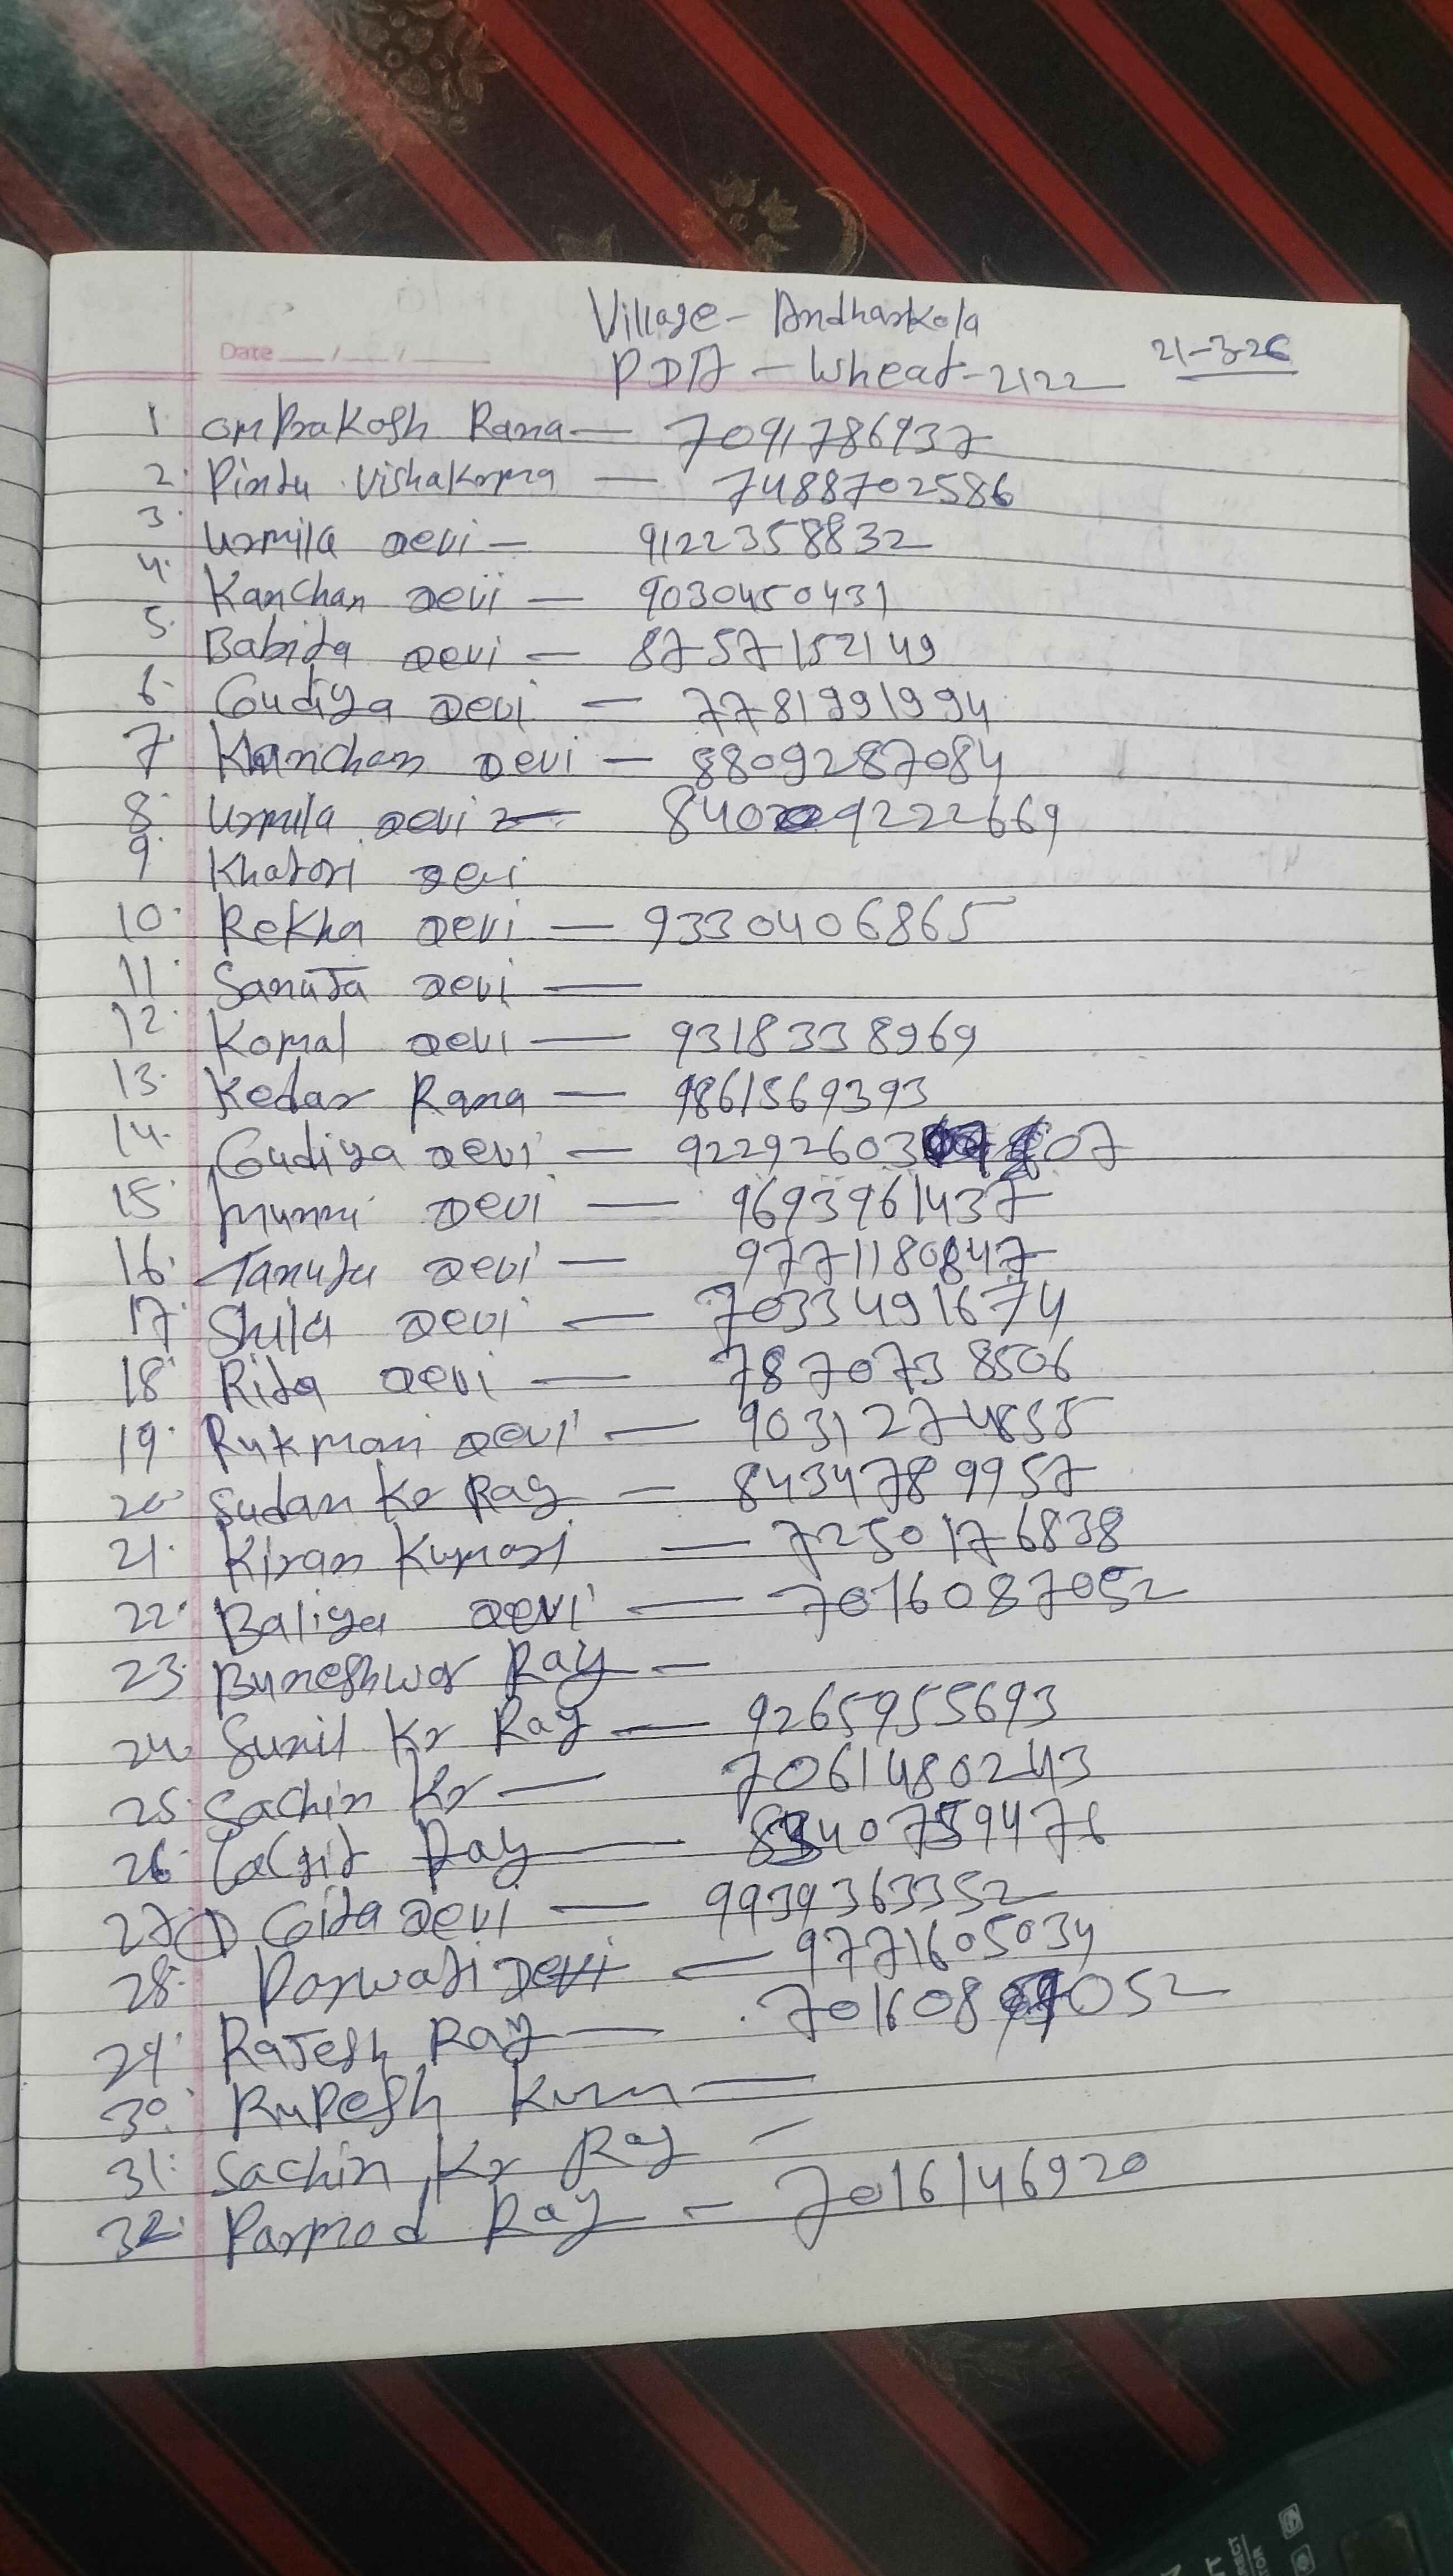 Village - Andharkola
Date __/__/____
PDA - Wheat - 2122 21-3-26
1. Om Prakash Rana — 7091786937
2. Pintu Vishakarma — 7488702586
3. Urmila Devi — 9122358832
4. Kanchan Devi — 9030450431
5. Babita Devi — 8757152149
6. Gudiya Devi — 7781991994
7. Kanchan Devi — 8809287084
8. Urmila Devi — 9222669
9. Khatori Devi
10. Rekha Devi — 9330406865
11. Sanuja Devi —
12. Komal Devi — 9318338969
13. Kedar Rana — 9861569393
14. Gudiya Devi — 92292603 07
15. Munni Devi — 9693961437
16. Tanuja Devi — 9771180847
17. Shila Devi — 7033491674
18. Rita Devi — 7870738506
19. Rukmani Devi — 9031274855
20. Sudan Kr Ray — 8434789957
21. Kiran Kumari — 7250176838
22. Baliya Devi — 7016087052
23. Buneshwar Ray —
24. Sunil Kr Ray — 9265955693
25. Sachin Kr — 7061480243
26. Laljit Ray —
27. Gita Devi — 9939363352
28. Parwati Devi — 9771605034
29. Rajesh Ray — 701608 052
30. Rupesh Kum —
31. Sachin Kr Ray —
32. Parmod Ray — 7016146920